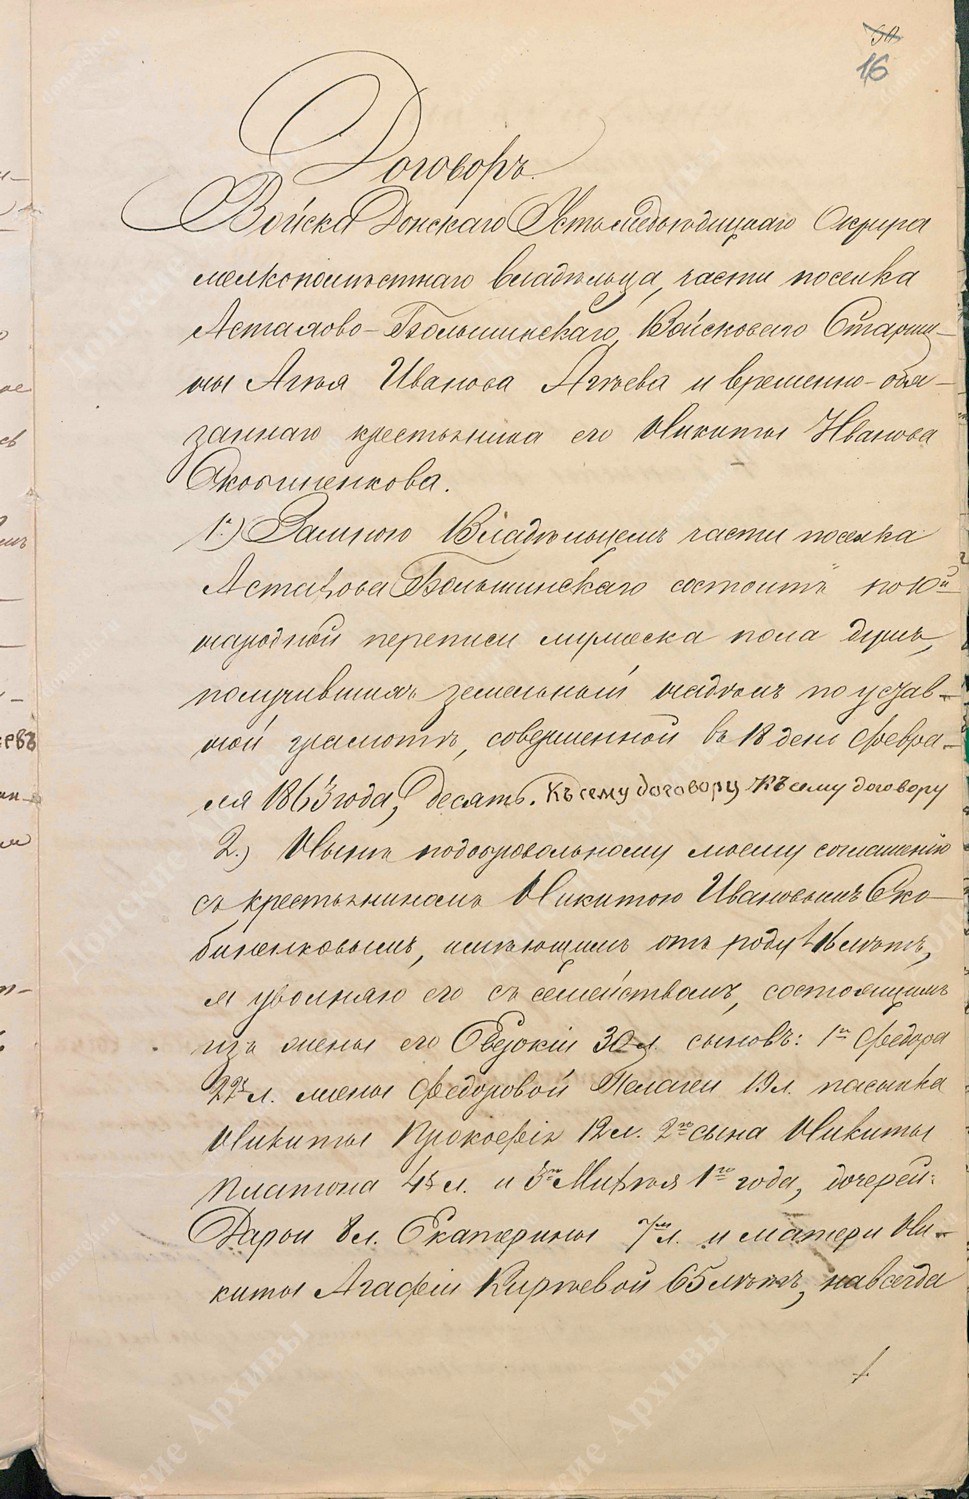 16
Договоръ.
Войска Донскаго Устьмедведицкаго Округа
мелкопоместнаго владельца, части поселка
Астахово-Большинскаго, Войсковаго Старши-
ны Агея Иванова Агеева и временно-обя-
заннаго крестьянина его Никиты Иванова
Скобиненкова.
1.) За мною Владельцемъ части поселка
Астахова Большинскаго состоитъ по 10й
народной переписи мужеска пола душъ,
получившихъ земельный наделъ по устав-
ной грамоте, совершенной въ 18 день Февра-
ля 1863 года, десять. Къ сему договору Къ сему договору
2.) Ныне по добровольному моему соглашенію
съ крестьяниномъ Никитою Ивановымъ Ско-
биненковымъ, имеющимъ отъ роду 46 летъ,
я увольняю его съ семействомъ, состоящимъ
изъ жены его Евдокіи 30 л. сыновъ: 1го Федора
22 л. жены Федоровой Пелагеи 19 л. пасынка
Никиты Прокофія 12 л. 2го сына Никиты
Платона 4 л. и 3го Михея 1го года, дочерей:
Дарьи 8 л. Екатерины 7 л. и матери Ни-
киты Агафіи Киреевой 65 летъ, навсегда